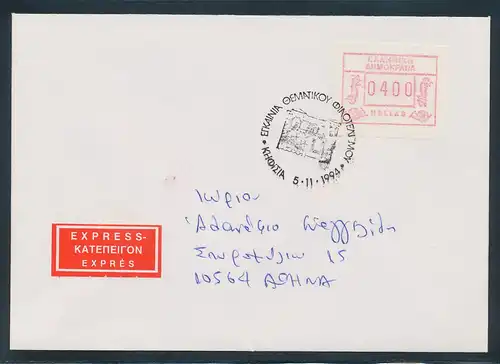 ΕΛΛΗΝΙΚΗ
ΔΗΜΟΚΡΑΤΙΑ
0400
HELLAS
ΕΓΚΑΙΝΙΑ ΘΕΜΑΤΙΚΟΥ ΦΙΛΟΤΕΛΙΣΜΟΥ
• ΚΗΦΙΣΙΑ 5·11·1994 •
Κύριον
Αθανάσιο
Σπυρομήλιου 15
10564 ΑΘΗΝΑ
EXPRESS-
ΚΑΤΕΠΕΙΓΟΝ
EXPRÈS